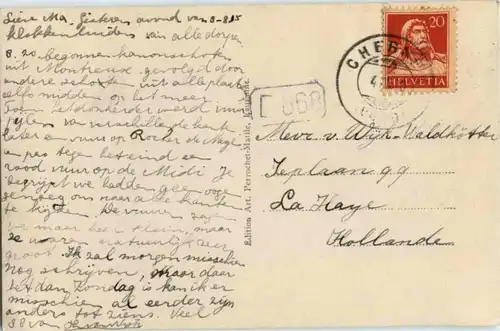 Lieve Ma. Gisteren avond van 8-8.15
klokkenluiden van alle dorpen
8.20 begonnen kanonschoten
uit Montreux, gevolgd door
andere uit alle plaatsen
zelfs midden op het meer
Toen het donker werd
van verschillende kanten
later en vuur op Rocher de Naye
en pas tegen het eind een
rood vuur op de Midi Je
begrijpt we hadden geen ogen
genoeg om naar alle kanten
te kijken. De vuren zagen
we maar heel klein, maar
ze waren natuurlijk zeer
groot. Ik zal morgen misschien
nog schrijven, maar daar
het dan Zondag is kan ik er
misschien al eerder zijn
anders tot ziens. Veel
Edition Art. Perrochet-Matile, Lausanne
068
CHEB
20
HELVETIA
Mevr. v. Wijk-Waldkötter
Ieplaan 99
La Haye
Hollande